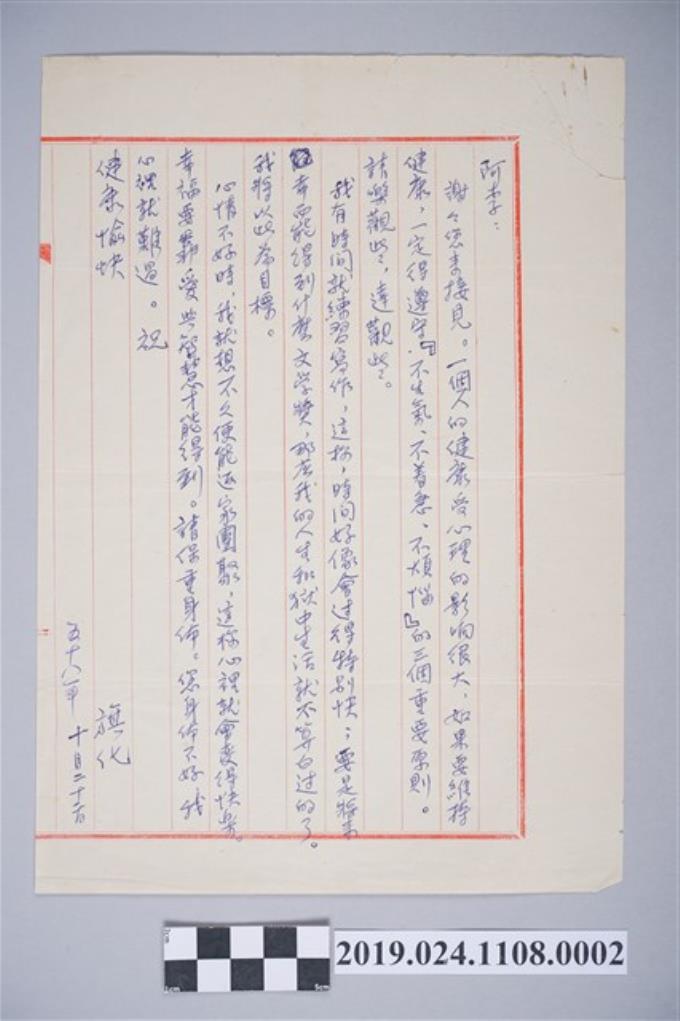 阿李：
謝々您來接見。一個人的健康受心理的影响很大，如果要維持
健康，一定得遵守『不生氣、不着急、不煩惱』的三個重要原則。
請樂觀些，達觀些。
我有時间就練習寫作，這样，時间好像會过得特别快；要是將來
幸而能得到什麼文学獎，那麼我的人生和獄中生活就不算白过的了。
我將以此為目標。
心情不好時，我就想不久便能返家團聚，這样心裡就會变得快樂。
幸福要靠愛與智慧才能得到。請保重身体。您身体不好我
心裡就難過。祝
健康愉快
旗化
五十八年 十月二十
2019.024.1108.0002